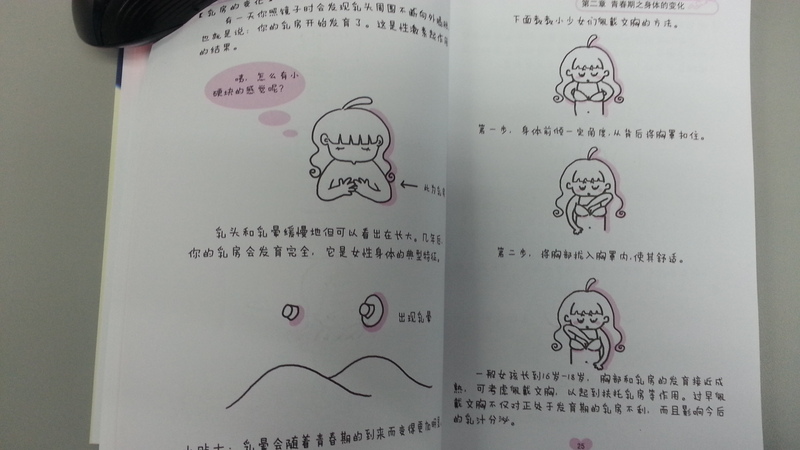 有一天你照镜子时会发现乳头周围不断向外
也就是说：你的乳房开始发育了。这是性激素起作用
的结果。
嗯，怎么有小
硬块的感觉呢？
乳头和乳晕缓慢地但可以看出在长大。几年后
你的乳房会发育完全，它是女性身体的典型特征。
出现乳晕
乳晕会随着青春期的到来而变得更加
第二章 青春期之身体的变化
下面教教小少女们佩戴文胸的方法。
第一步，身体前倾一定角度，从背后将胸罩扣住。
第二步，将胸部拨入胸罩内，使其舒适。
一般女孩长到16岁-18岁，胸部和乳房的发育接近成
熟，可考虑佩戴文胸，以起到扶托乳房等作用。过早佩
戴文胸不仅对正处于发育期的乳房不利，而且影响今后
的乳汁分泌。
25